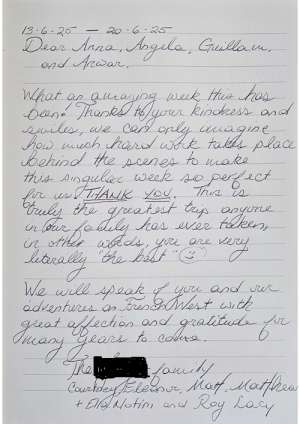 13-6-25 — 20-6-25
Dear Anna, Angela, Guillam,
and Anwar,
What an amazing week this has
been! Thanks to your kindness and
smiles, we can only imagine
how much hard work takes place
behind the scenes to make
this singular week so perfect
for us! THANK YOU. This is
truly the greatest trip anyone
in our family has ever taken,
in other words, you are very
literally "the best"
We will speak of you and our
adventures on French West with
great affection and gratitude for
many years to come.
The family
Courtney, Eleanor, Matt,
+ Ella and Roy Lacy